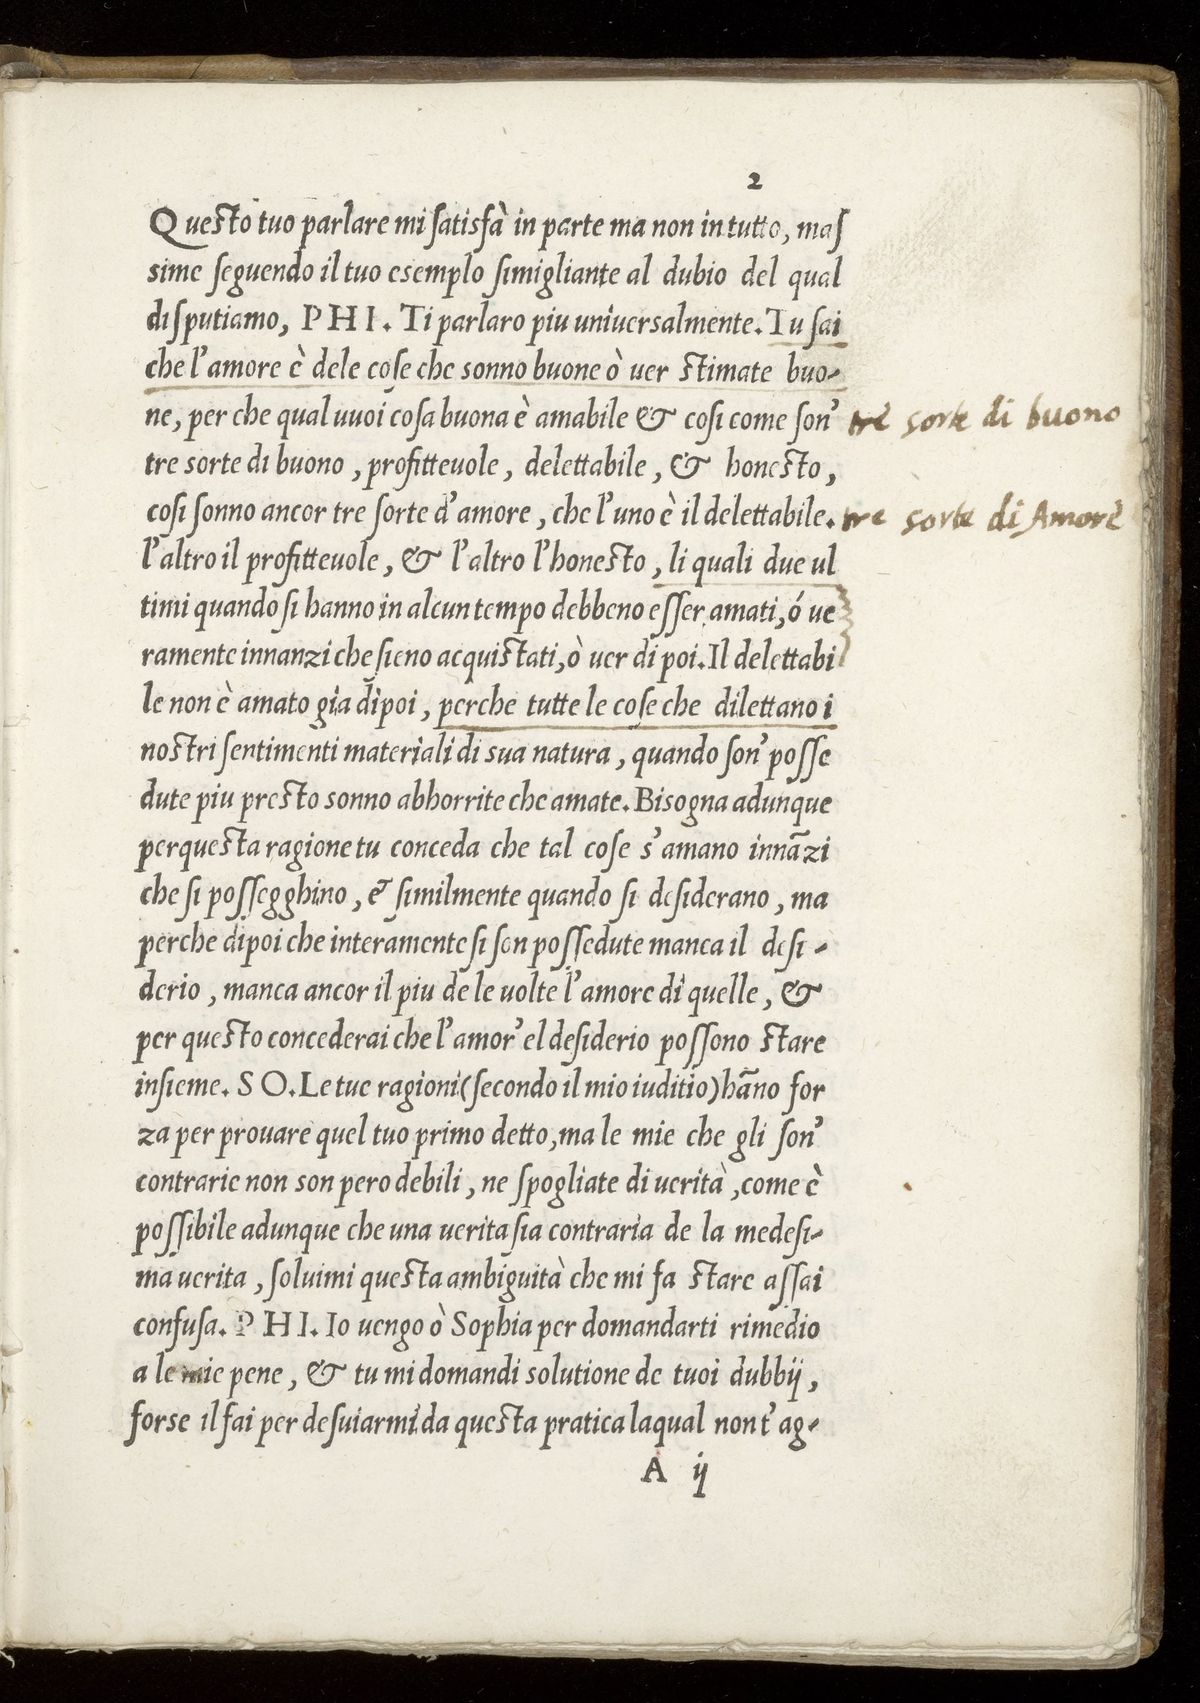 2
Questo tuo parlare mi satisfà in parte ma non in tutto, mas
sime seguendo il tuo esemplo simigliante al dubio del qual
disputiamo, PHI. Ti parlaro piu uniuersalmente. Tu sai
che l'amore è dele cose che sonno buone ò uer stimate buo-
ne, per che qual uuoi cosa buona è amabile & cosi come son'
tre sorte di buono
tre sorte di buono, profitteuole, delettabile, & honesto,
cosi sonno ancor tre sorte d'amore, che l'uno è il delettabile.
tre sorte di Amore
l'altro il profitteuole, & l'altro l'honesto, li quali due ul
timi quando si hanno in alcun tempo debbeno esser amati, ó ue
ramente innanzi che sieno acquistati, ò uer di poi. Il delettabi
le non è amato gia dipoi, perche tutte le cose che dilettano i
nostri sentimenti materiali di sua natura, quando son' posse
dute piu presto sonno abhorrite che amate. Bisogna adunque
perquesta ragione tu conceda che tal cose s'amano innāzi
che si possegghino, & similmente quando si desiderano, ma
perche dipoi che interamente si son possedute manca il desi-
derio, manca ancor il piu de le uolte l'amore di quelle, &
per questo concederai che l'amor' el desiderio possono stare
insieme. SO. Le tue ragioni (secondo il mio iuditio) hāno for
za per prouare quel tuo primo detto, ma le mie che gli son'
contrarie non son pero debili, ne spogliate di uerità, come è
possibile adunque che una uerita sia contraria de la medesi-
ma uerita, soluimi questa ambiguità che mi fa stare assai
confusa. PHI. Io uengo ò Sophia per domandarti rimedio
a le mie pene, & tu mi domandi solutione de tuoi dubbij,
forse il fai per desuiarmi da questa pratica laqual non t'ag-
A ij